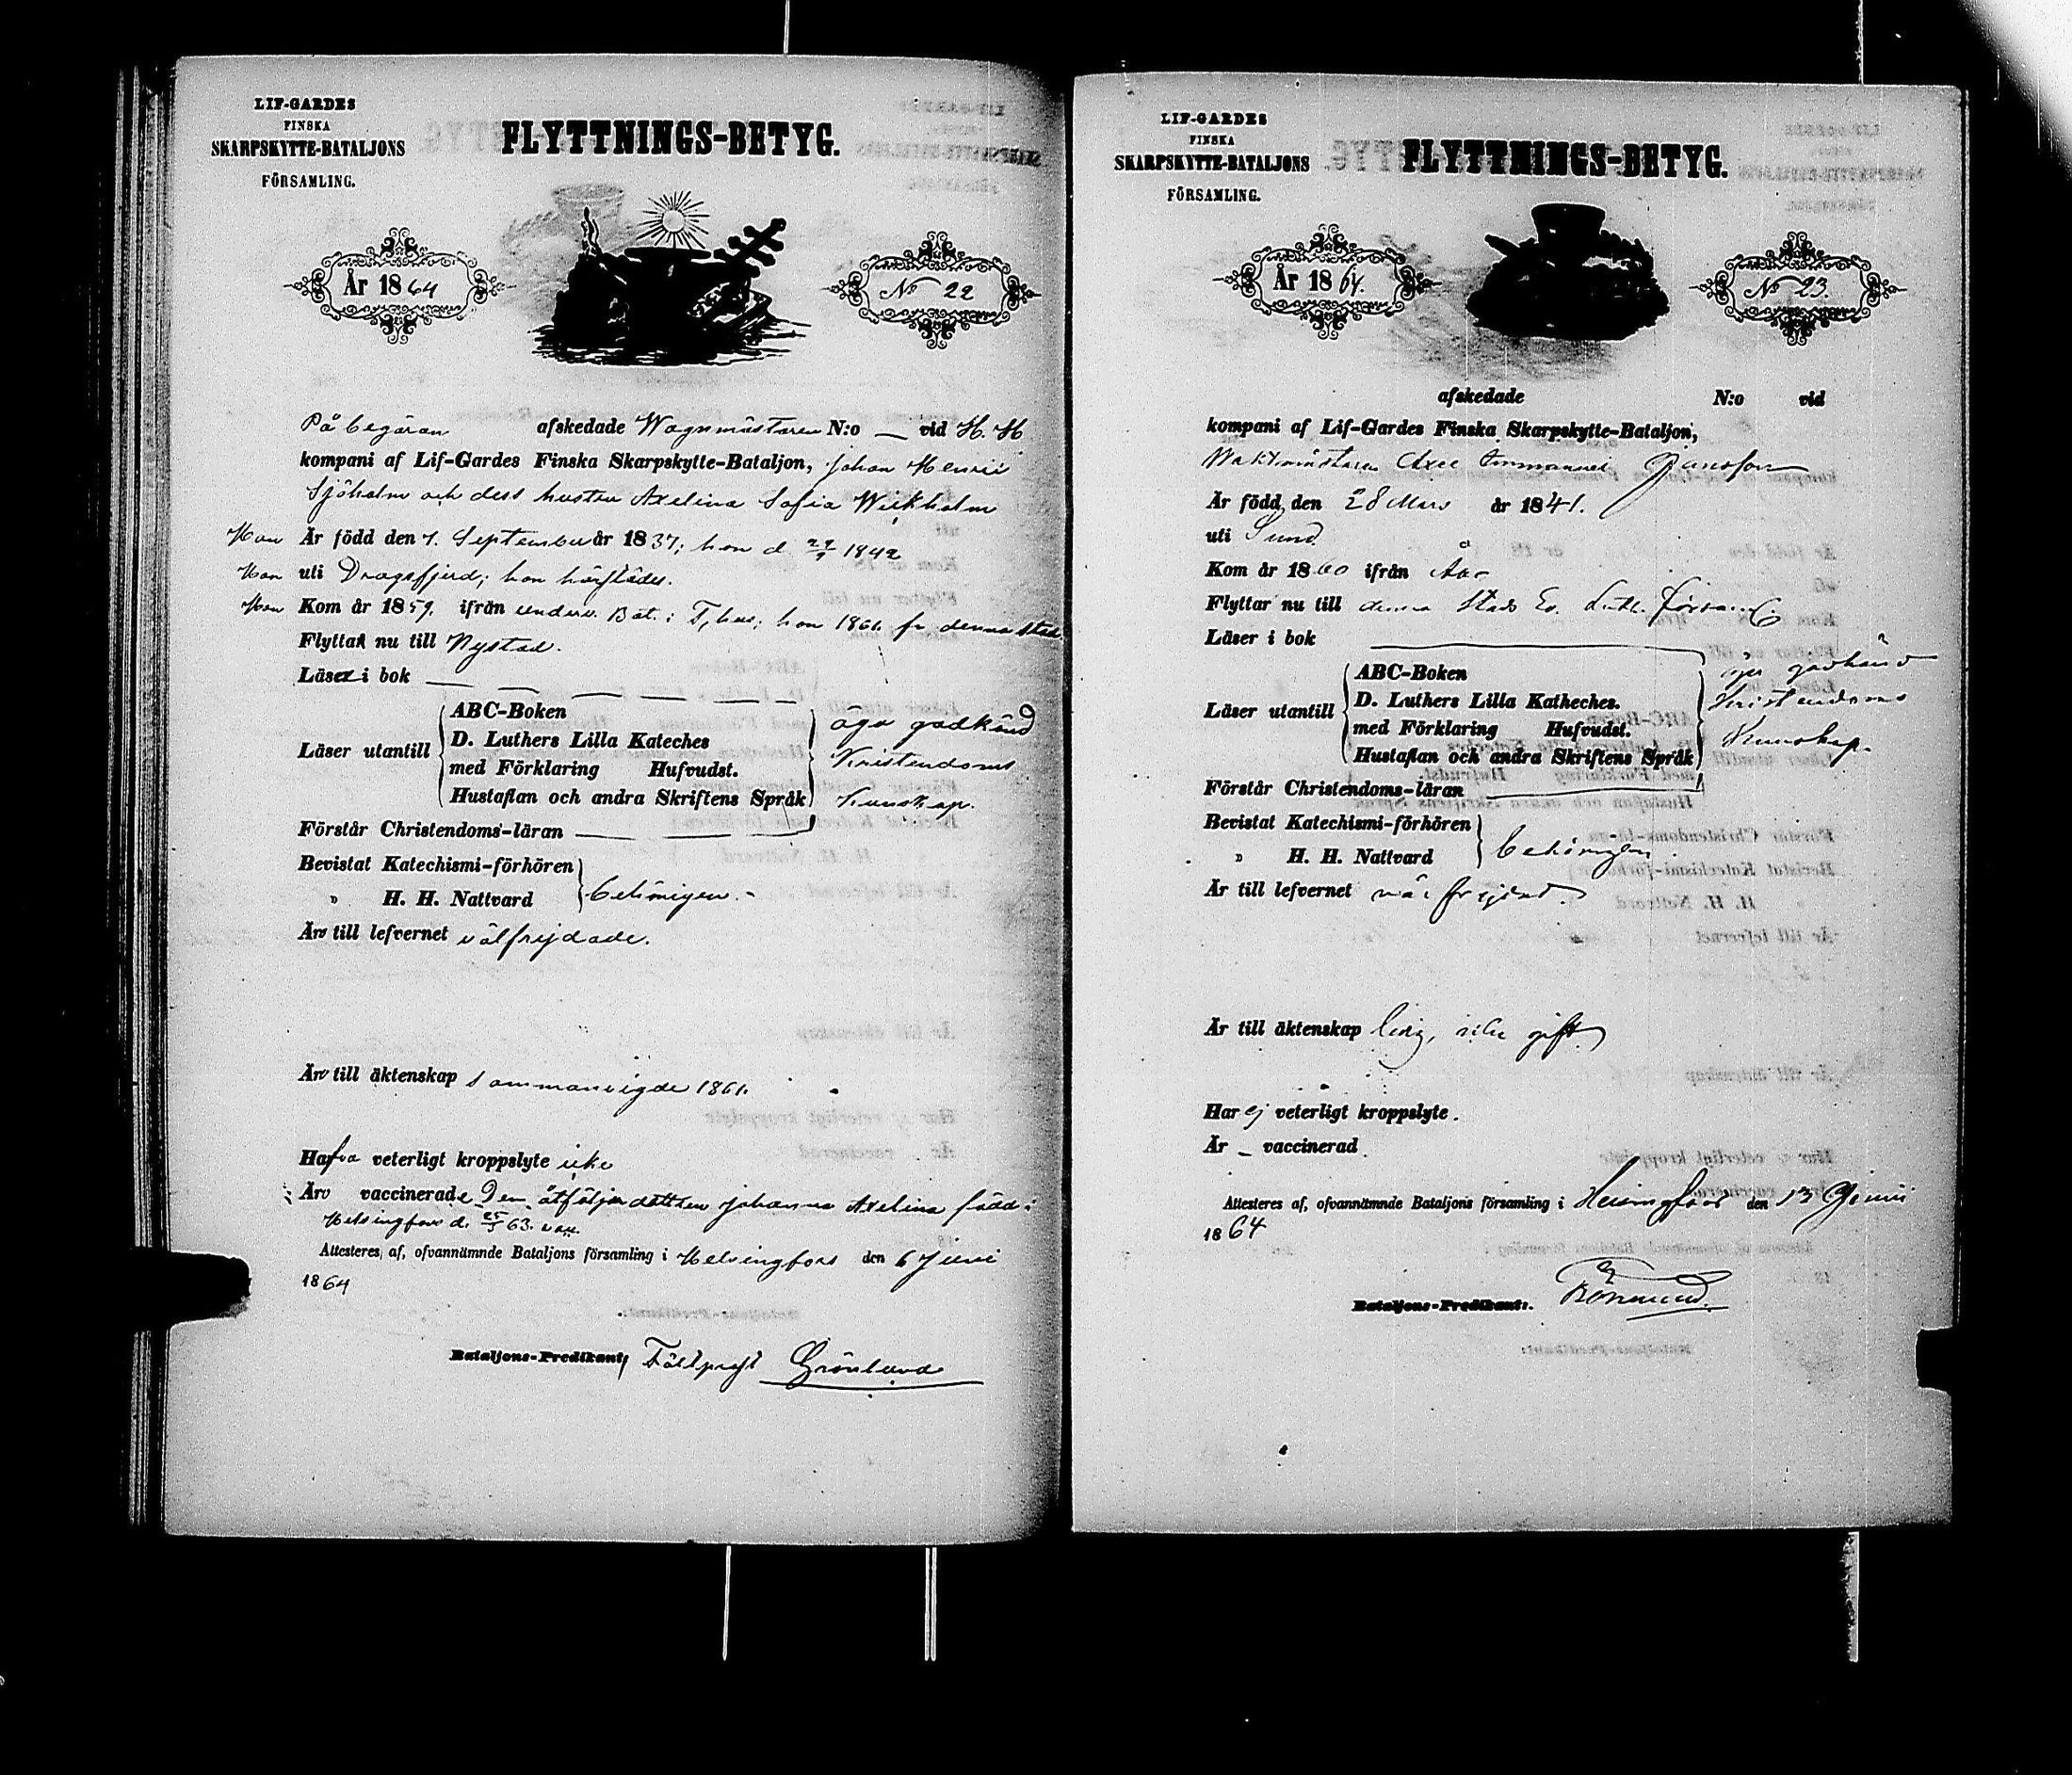 LIF-GARDES
FINSKA
SKARPSKYTTE-BATALJONS
FÖRSAMLING.
FLYTTNINGS-BETYG.
År 1864
No 22
På begäran afskedade Wagnmästaren N:o — vid H. H
kompani af Lif-Gardes Finska Skarpskytte-Bataljon, Johan Henric
Sjöholm och dess hustru Axelina Sofia Wickholm
Han Är född den 7. September år 1837; hon d 29/9 1842
Han uti Dragsfjerd; hon härstädes.
Han Kom år 1859. ifrån underv. Bat. i T,hus; hon 1861. fr denna stad.
Flytta nu till Nystad.
Läser i bok — — — — — —
Läser utantill
ABC-Boken
D. Luthers Lilla Kateches
med Förklaring Hufvudst.
Hustaflan och andra Skriftens Språk
äga godkänd
Kristendoms
Kunskap.
Förstår Christendoms-läran — — —
Bevistat Katechismi-förhören
" H. H. Nattvard
behörigen.-
Äro till lefvernet välfrejdade.
Äro till äktenskap sammanvigde 1861.
Hafva veterligt kroppslyte icke
Äro vaccinerade Dem åtföljer dottren Johanna Axelina född i
Helsingfors d. 63. vacc.
Attesteres af, ofvannämnde Bataljons församling i Helsingfors den 6 Juni
1864
Bataljons-Predikant, Fältprost Grönlund
LIF-GARDES
FINSKA
SKARPSKYTTE-BATALJONS
FÖRSAMLING.
FLYTTNINGS-BETYG.
År 1864.
No 23.
afskedade N:o vid
kompani af Lif-Gardes Finska Skarpskytte-Bataljon,
Waktmästaren Axel Emmanuel Jansson
Är född den 28 Mars år 1841.
uti Sund.
Kom år 1860 ifrån Åbo
Flyttar nu till denna Stads Ev. Luth. Församl.
Läser i bok
Läser utantill
ABC-Boken
D. Luthers Lilla Katheches.
med Förklaring Hufvudst.
Hustaflan och andra Skriftens Språk
äger godkänd
Kristendoms
Kunskap.
Förstår Christendoms-läran
Bevistat Katechismi-förhören
" H. H. Nattvard
behörigen.
Är till lefvernet väl frejdad.
Är till äktenskap ledig, icke gift.
Har ej veterligt kroppslyte.
Är – vaccinerad.
Attesteres af, ofvannämnde Bataljons församling i Helsingfors den 13 Junii
1864
Bataljons-Predikant: